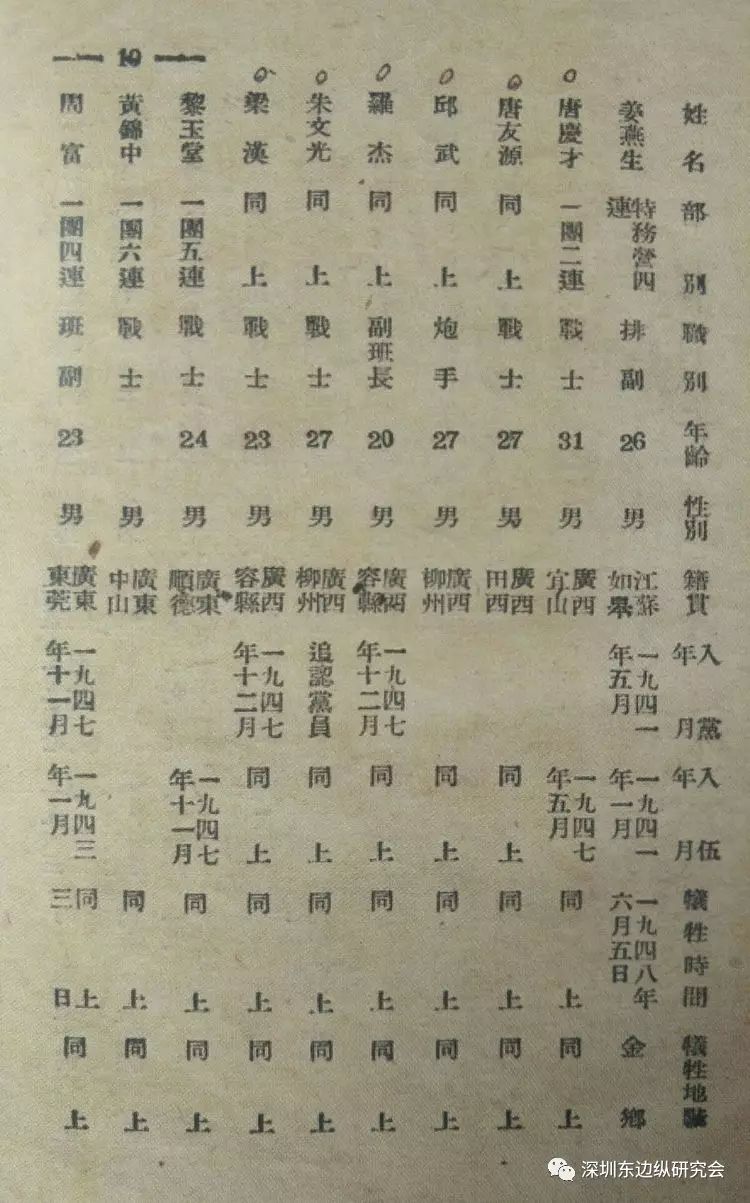 姓名 部別 職別 年齡 性別 籍貫 入黨年月 入伍年月 犧牲時間 犧牲地點
姜燕生 特務營四連 排副 26 男 江蘇如皋 一九四一年五月 一九四一年一月 一九四八年六月五日 金鄉
唐慶才 一團二連 戰士 31 男 廣西宜山 一九四七年五月 同上 同上
唐友源 同上 戰士 27 男 廣西田西 同上 同上 同上
邱武 同上 炮手 27 男 廣西柳州 同上 同上 同上
羅杰 同上 副班長 20 男 廣西容縣 一九四七年十二月 同上 同上 同上
朱文光 同上 戰士 27 男 廣西柳州 追認黨員 同上 同上 同上
梁漢 同上 戰士 23 男 廣西容縣 一九四七年十二月 同上 同上 同上
黎玉堂 一團五連 戰士 24 男 廣東順德 一九四七年十一月 同上 同上
黃錦中 一團六連 戰士 男 廣東中山 同上 同上
周富 一團四連 班副 23 男 廣東東莞 一九四七年十一月 一九四三年一月 同上三日 同上
— 10 —
深圳东边纵研究会